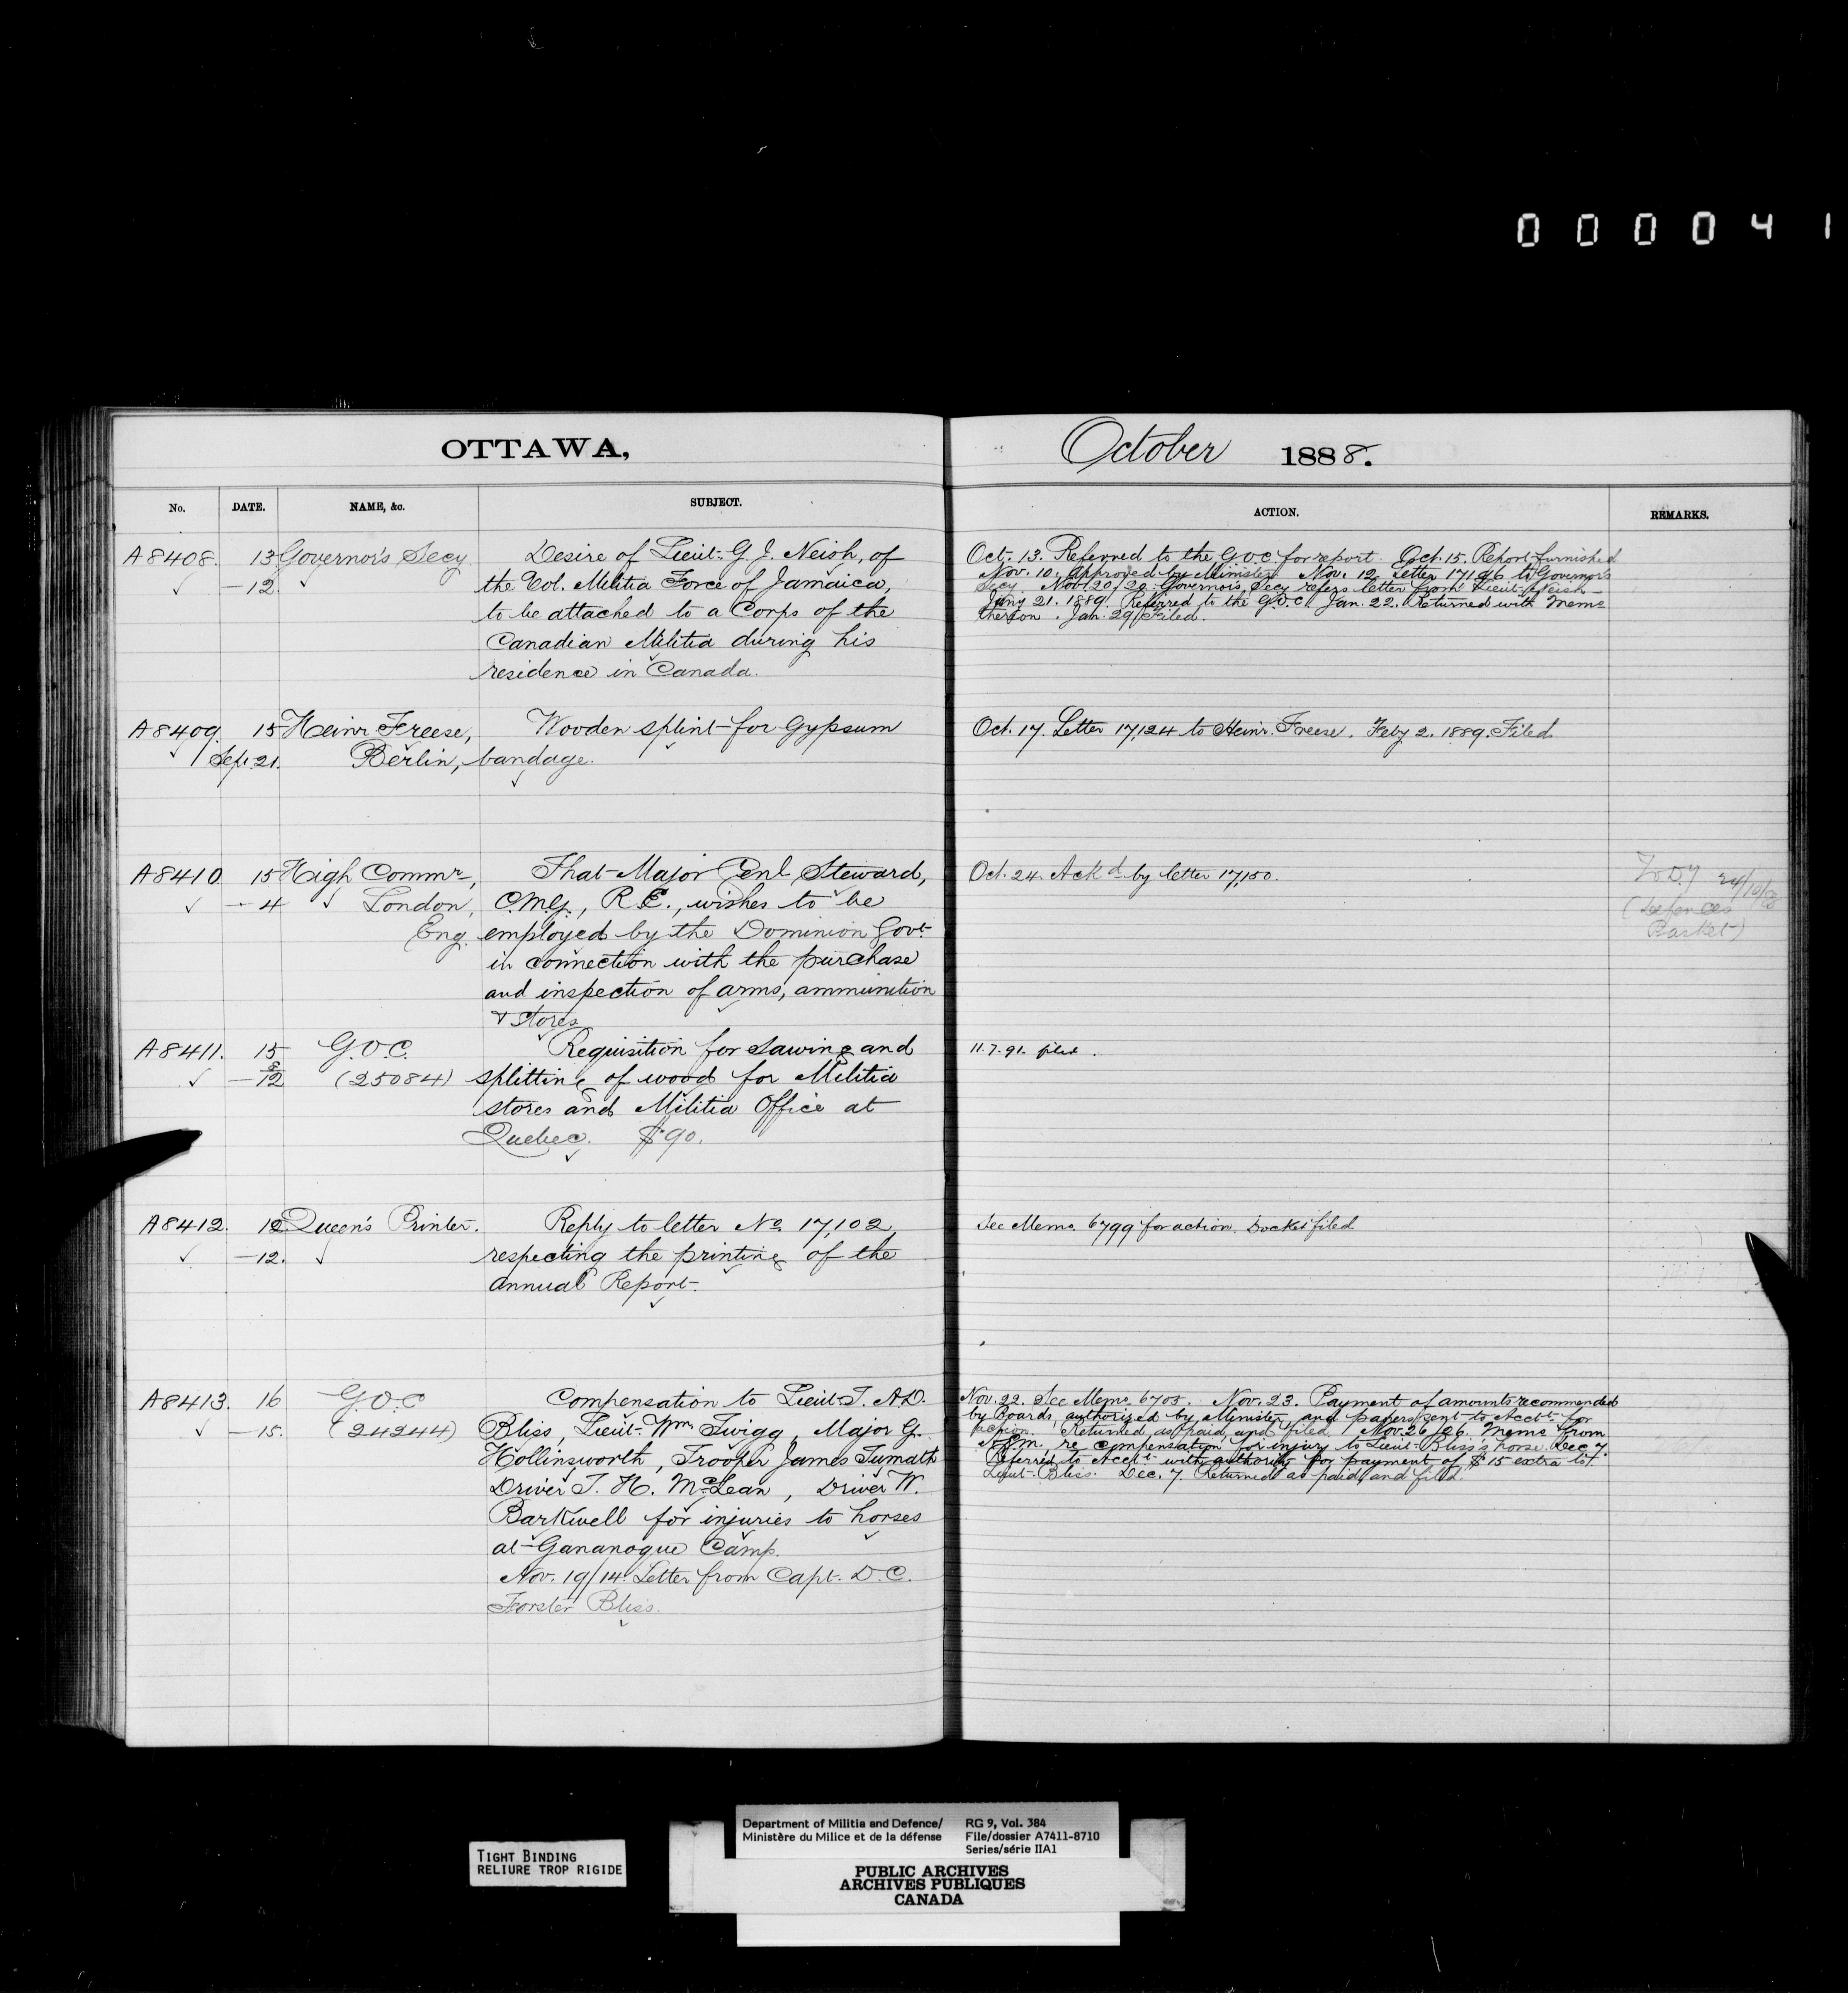 0 0 0 0 4 1
OTTAWA,
October 1888.
No. DATE. NAME, &c. SUBJECT. ACTION. REMARKS.
A8408. 13 Governor's Secy Desire of Lieut. G. J. Neish, of
— 12. the Vol. Militia Force of Jamaica,
to be attached to a Corps of the
Canadian Militia during his
residence in Canada.
Oct. 13. Referred to the G.O.C. for report. Oct. 15. Report furnished
Nov. 10. Approved by Minister. Nov. 12. Letter 17196 to Governor's
Secy. Nov. 20/20 Governor's Secy refers letter from Lieut. Neish
Jany 21. 1889. Referred to the G.O.C. Jan. 22. Returned with Memo
thereon. Jan. 29 Filed.
A8409. 15 Heinr Freese, Wooden splint for Gypsum
Sept. 21. Berlin, bandage.
Oct. 17. Letter 17,124 to Heinr. Freese. Feby 2. 1889. Filed.
A8410 15 High Commr, That Major Genl Steward,
— 4 London, C.M.G., R.E., wishes to be
Eng. employed by the Dominion Govt.
in connection with the purchase
and inspection of arms, ammunition
& stores
Oct. 24. Ackd by letter 17,150.
24/10/88
(Defences
Packet)
A8411. 15 G.O.C. Requisition for sawing and
— 12 (25084) splitting of wood for Militia
stores and Militia Office at
Quebec. $90.
11.7.91. filed.
A8412. 12 Queen's Printer. Reply to letter No 17,102
— 12. respecting the printing of the
annual Report.
See Memo. 6799 for action. Docket filed
A8413. 16 G.O.C Compensation to Lieut. T. A.D.
— 15. (24244) Bliss, Lieut. Wm. Twigg, Major G.
Hollinsworth, Trooper James Tumath
Driver T. H. McLean, Driver W.
Barkwell for injuries to horses
at Gananoque Camp.
Nov. 19/14. Letter from Capt. D.C.
Forster Bliss.
Nov. 22. See Memo. 6705. Nov. 23. Payment of amounts recommended
by Boards, authorized by Minister, and papers sent to Acct. for
action. Returned as paid, and filed. Nov. 26/26. Memo from
re compensation for injury to Lieut. Bliss's horse. Dec 7.
Referred to Acct. with authority for payment of $15 extra to
Lieut. Bliss. Dec. 7 Returned as paid and filed.
Department of Militia and Defence/ RG 9, Vol. 384
Ministère du Milice et de la défense File/dossier A7411-8710
Series/série IIA1
TIGHT BINDING
RELIURE TROP RIGIDE
PUBLIC ARCHIVES
ARCHIVES PUBLIQUES
CANADA